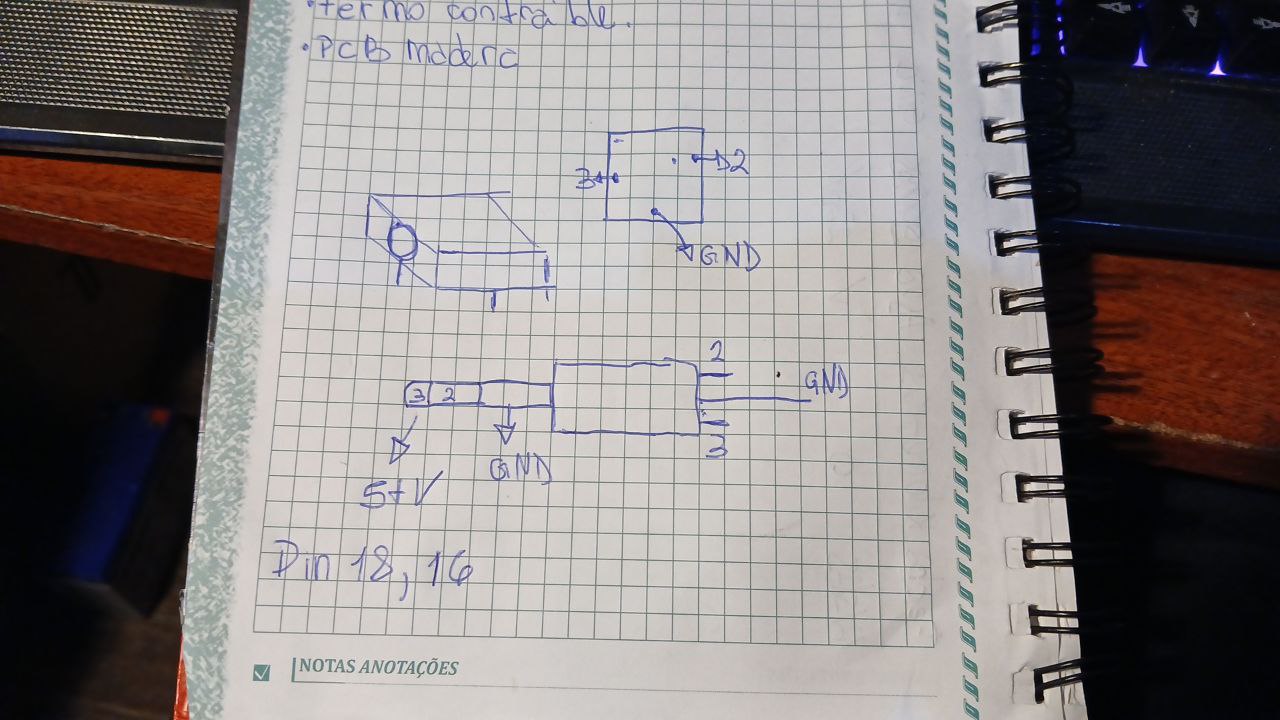 •termo contraible.
•PCB madera
D2
3
GND
2
GND
3 2
3
GND
5+V
Pin 18, 16
NOTAS ANOTAÇÕES